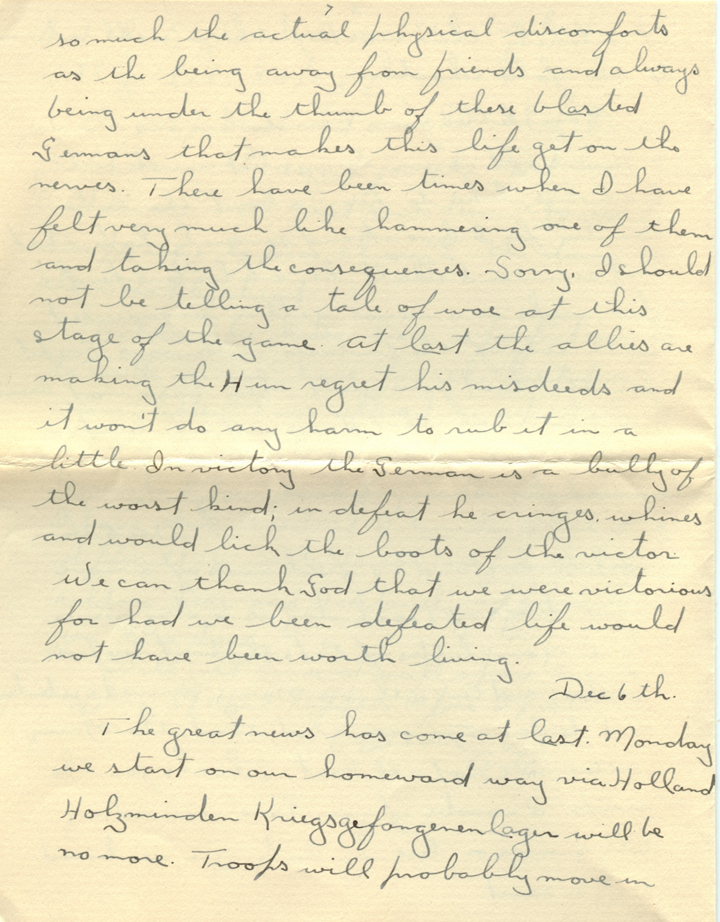 7
so much the actual physical discomforts
as the being away from friends and always
being under the thumb of these blasted
Germans that makes this life get on the
nerves. There have been times when I have
felt very much like hammering one of them
and taking the consequences. Sorry, I should
not be telling a tale of woe at this
stage of the game. At last the allies are
making the Hun regret his misdeeds and
it won't do any harm to rub it in a
little. In victory the German is a bully of
the worst kind; in defeat he cringes, whines
and would lick the boots of the victor.
We can thank God that we were victorious
for had we been defeated life would
not have been worth living.
Dec 6th.
The great news has come at last. Monday
we start on our homeward way via Holland
Holzminden Kriegsgefangenenlager will be
no more. Troops will probably move in